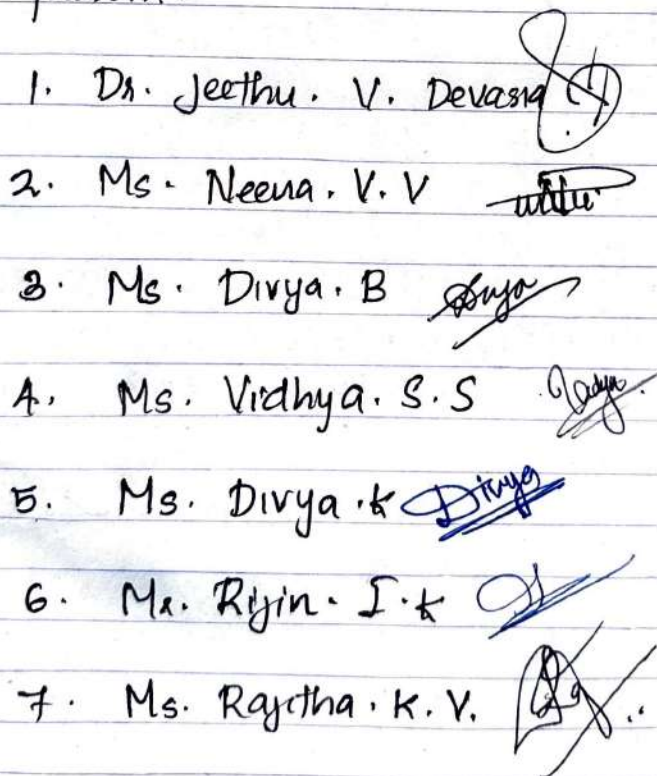 1. Dr. Jeethu. V. Devasia
2. Ms. Neena. V. V
3. Ms. Divya. B
4. Ms. Vidhya. S. S
5. Ms. Divya. K Divya
6. Mr. Rijin. I. K
7. Ms. Rajitha. K. V.